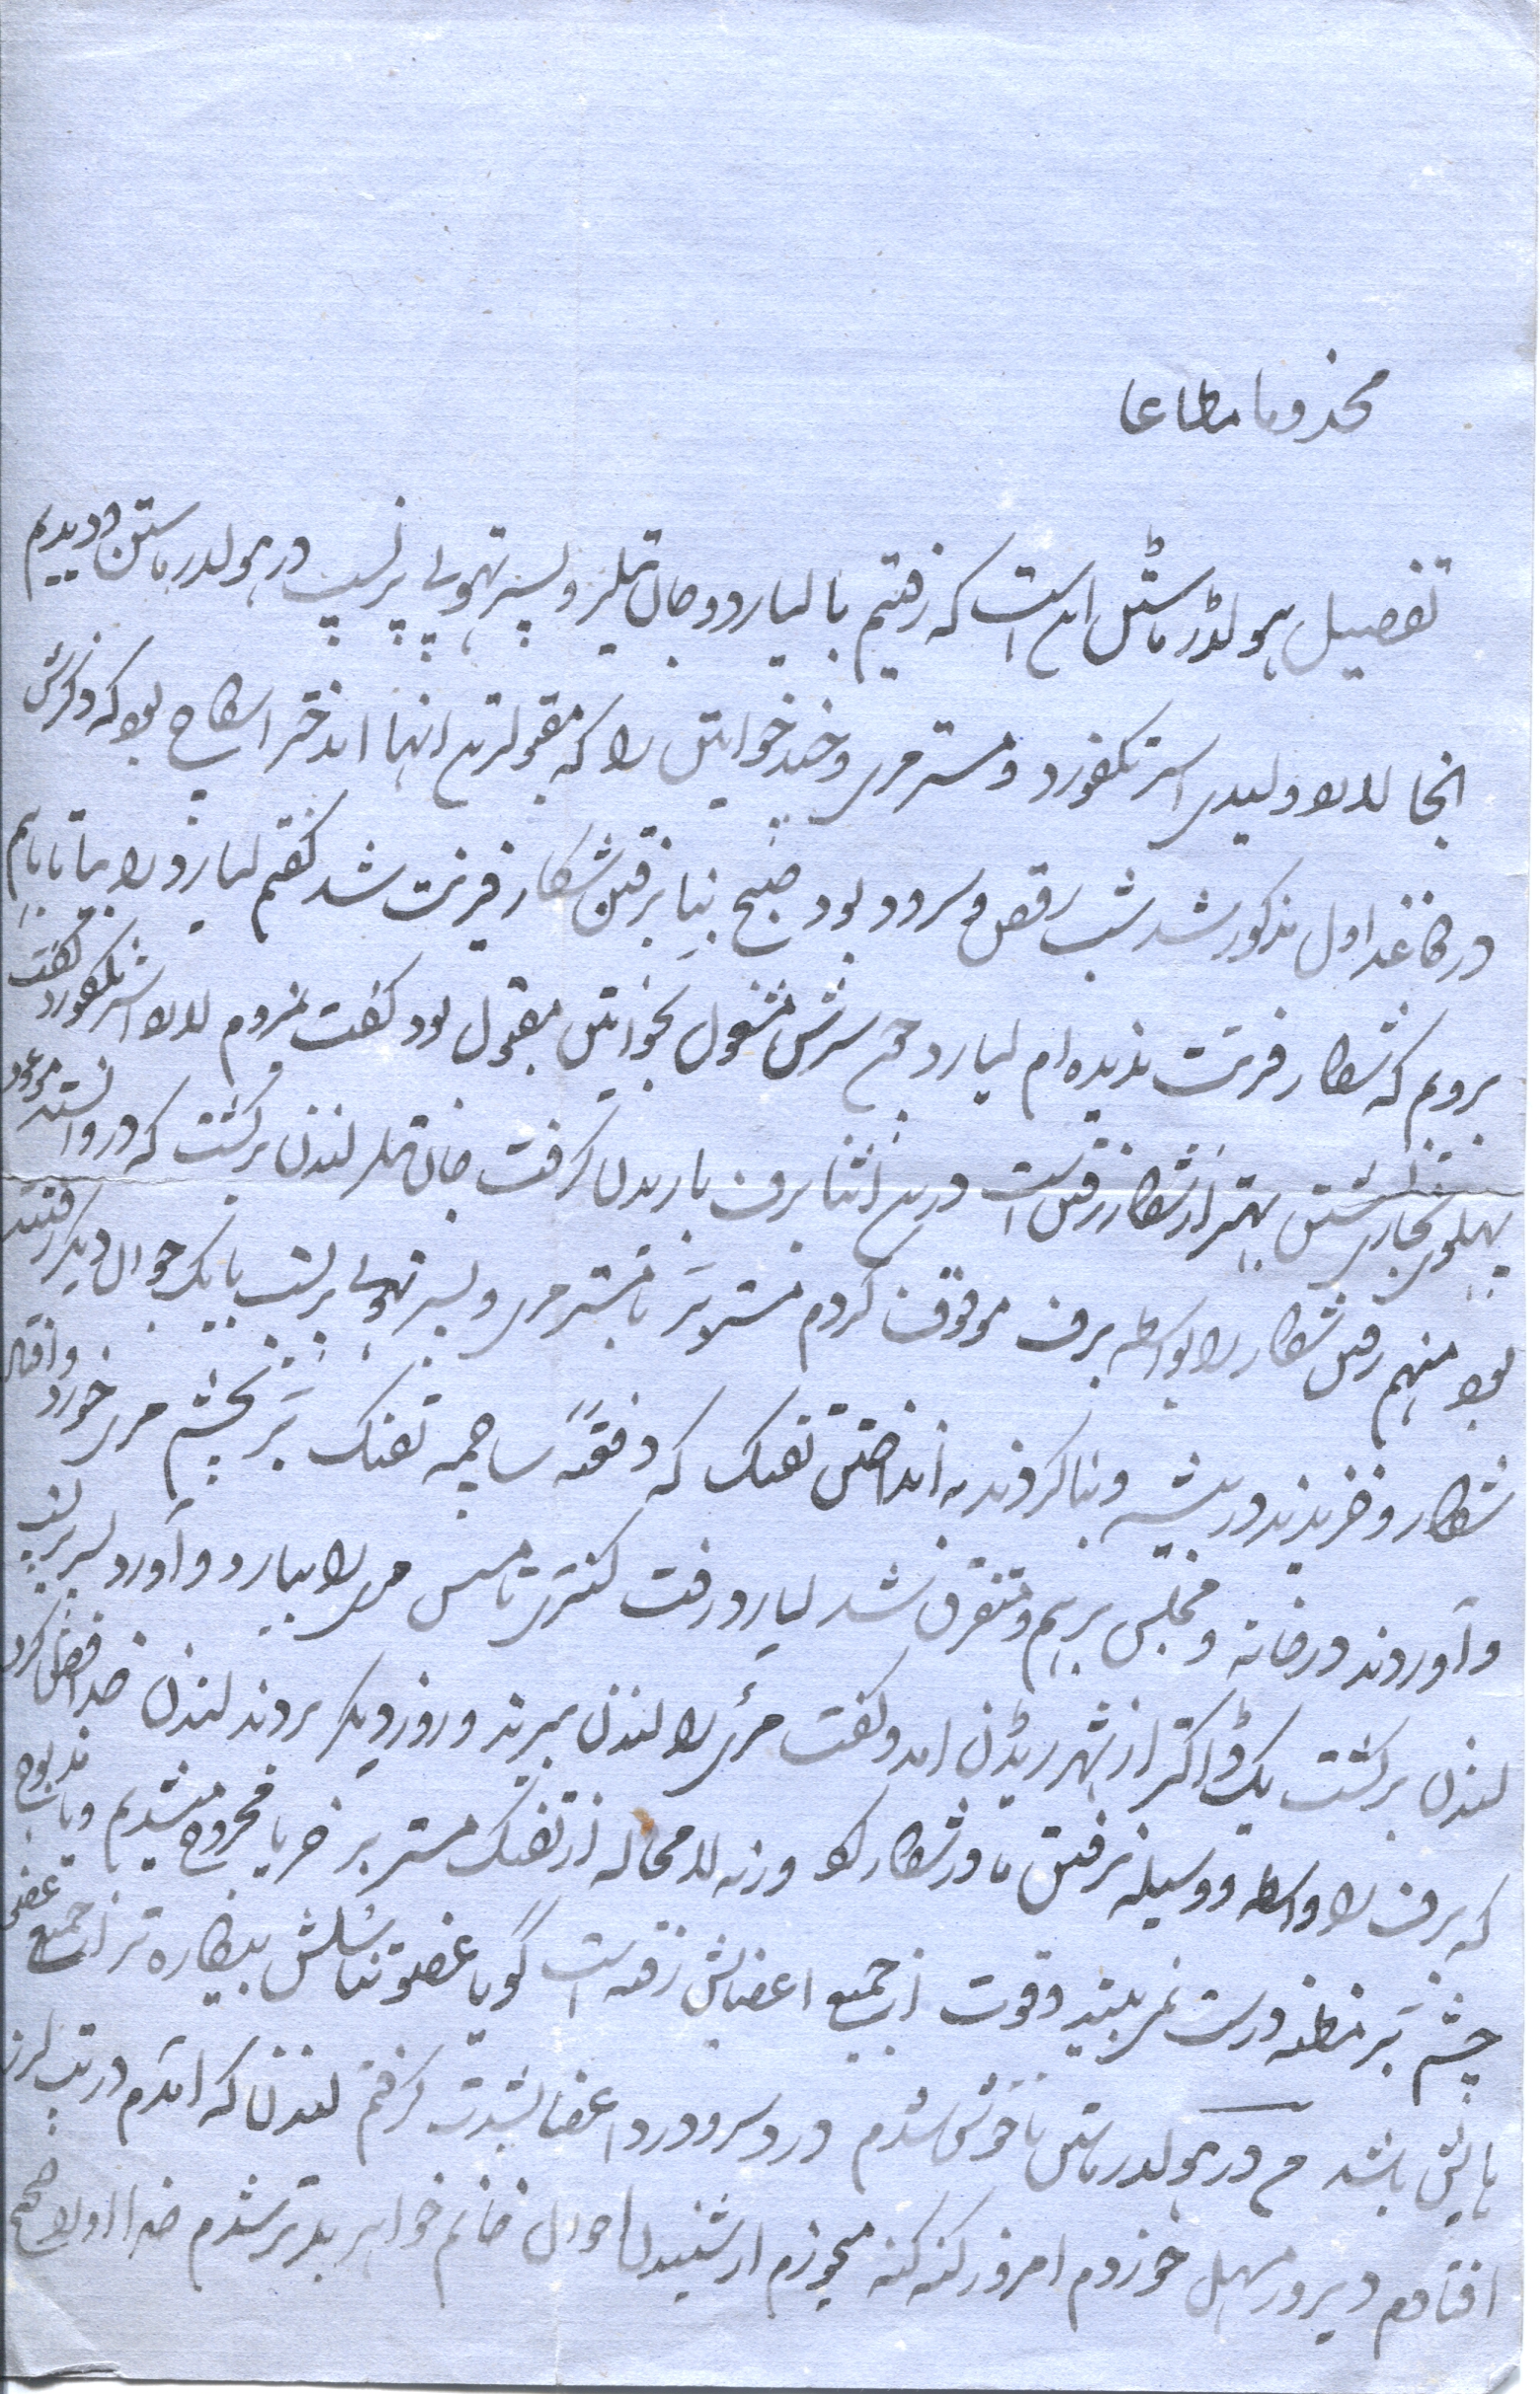 مخدوما مطاعا
تفصیل هولڈرماسٹن این است که رفتیم با لیارد و جان تیلر و پسر تهوبی پرنسپ در هولدرماستن و دیدیم
انجا لارد و لیدی استرنکفورد و مستر مری و چند خواتین را که مقبولترین انها دختر اسکاچ بود که ذکرش
در کاغذ اول مذکور شد شب رقص و سرود بود صبح بنا برفتن شکار فرنت شد کفتم لیارد را بیا تا باهم
برویم که شکار فرنت ندیده ام لیارد چون سرش مشغول بخواتین مقبول بود کفت نمیروم لارد استرنکفورد کفت
پهلوی بخاری نشستن بهتر از شکار رفتن است درین اثنا برف باریدن کرفت جان تیلر لندن برکشت که در موعود
بود منهم رفتن شکار را بواسطه برف موقوف کردم مستر با مستر مری و پسر تهوبی پرنسپ با یک جوان دیکر رفتند
شکار و خزیدند در بیشه و بنا کردند به انداختن تفنک که دفعةً ساچمه تفنک بر بچشم مری خورد و افتاد
و آوردند در خانه و مجلس برهم و متفرق شد لیارد رفت مس مری را بیارد و آورد پسر پرنسپ
لندن برکشت یک ڈاکتر از شهر ریڈن امد و کفت مری را لندن ببرند و روز دیکر بردند لندن خدا فضل کرد
که برف را واسطه و وسیله نرفتن ما در شکار کرد ورنه لامحاله از تفنک مستر بر خر یا مجروح میشدیم و یا مذبوح
چشم بر مظنه درست نمی بیند و قوت از جمیع اعضایش رفته است گویا عضو تناسلش بیکاره تر از جمیع عضو
هایش باشد من در هولدرماستن ناخوش شدم درد سر و درد اعضا بشدت کرفتم لندن که آمدم در تب لرز
افتادم دیروز مسهل خوردم امروز کنه کنه میخورم از شنیدن احوال خانم خواهر بدتر شدم خدا اولا صحیح